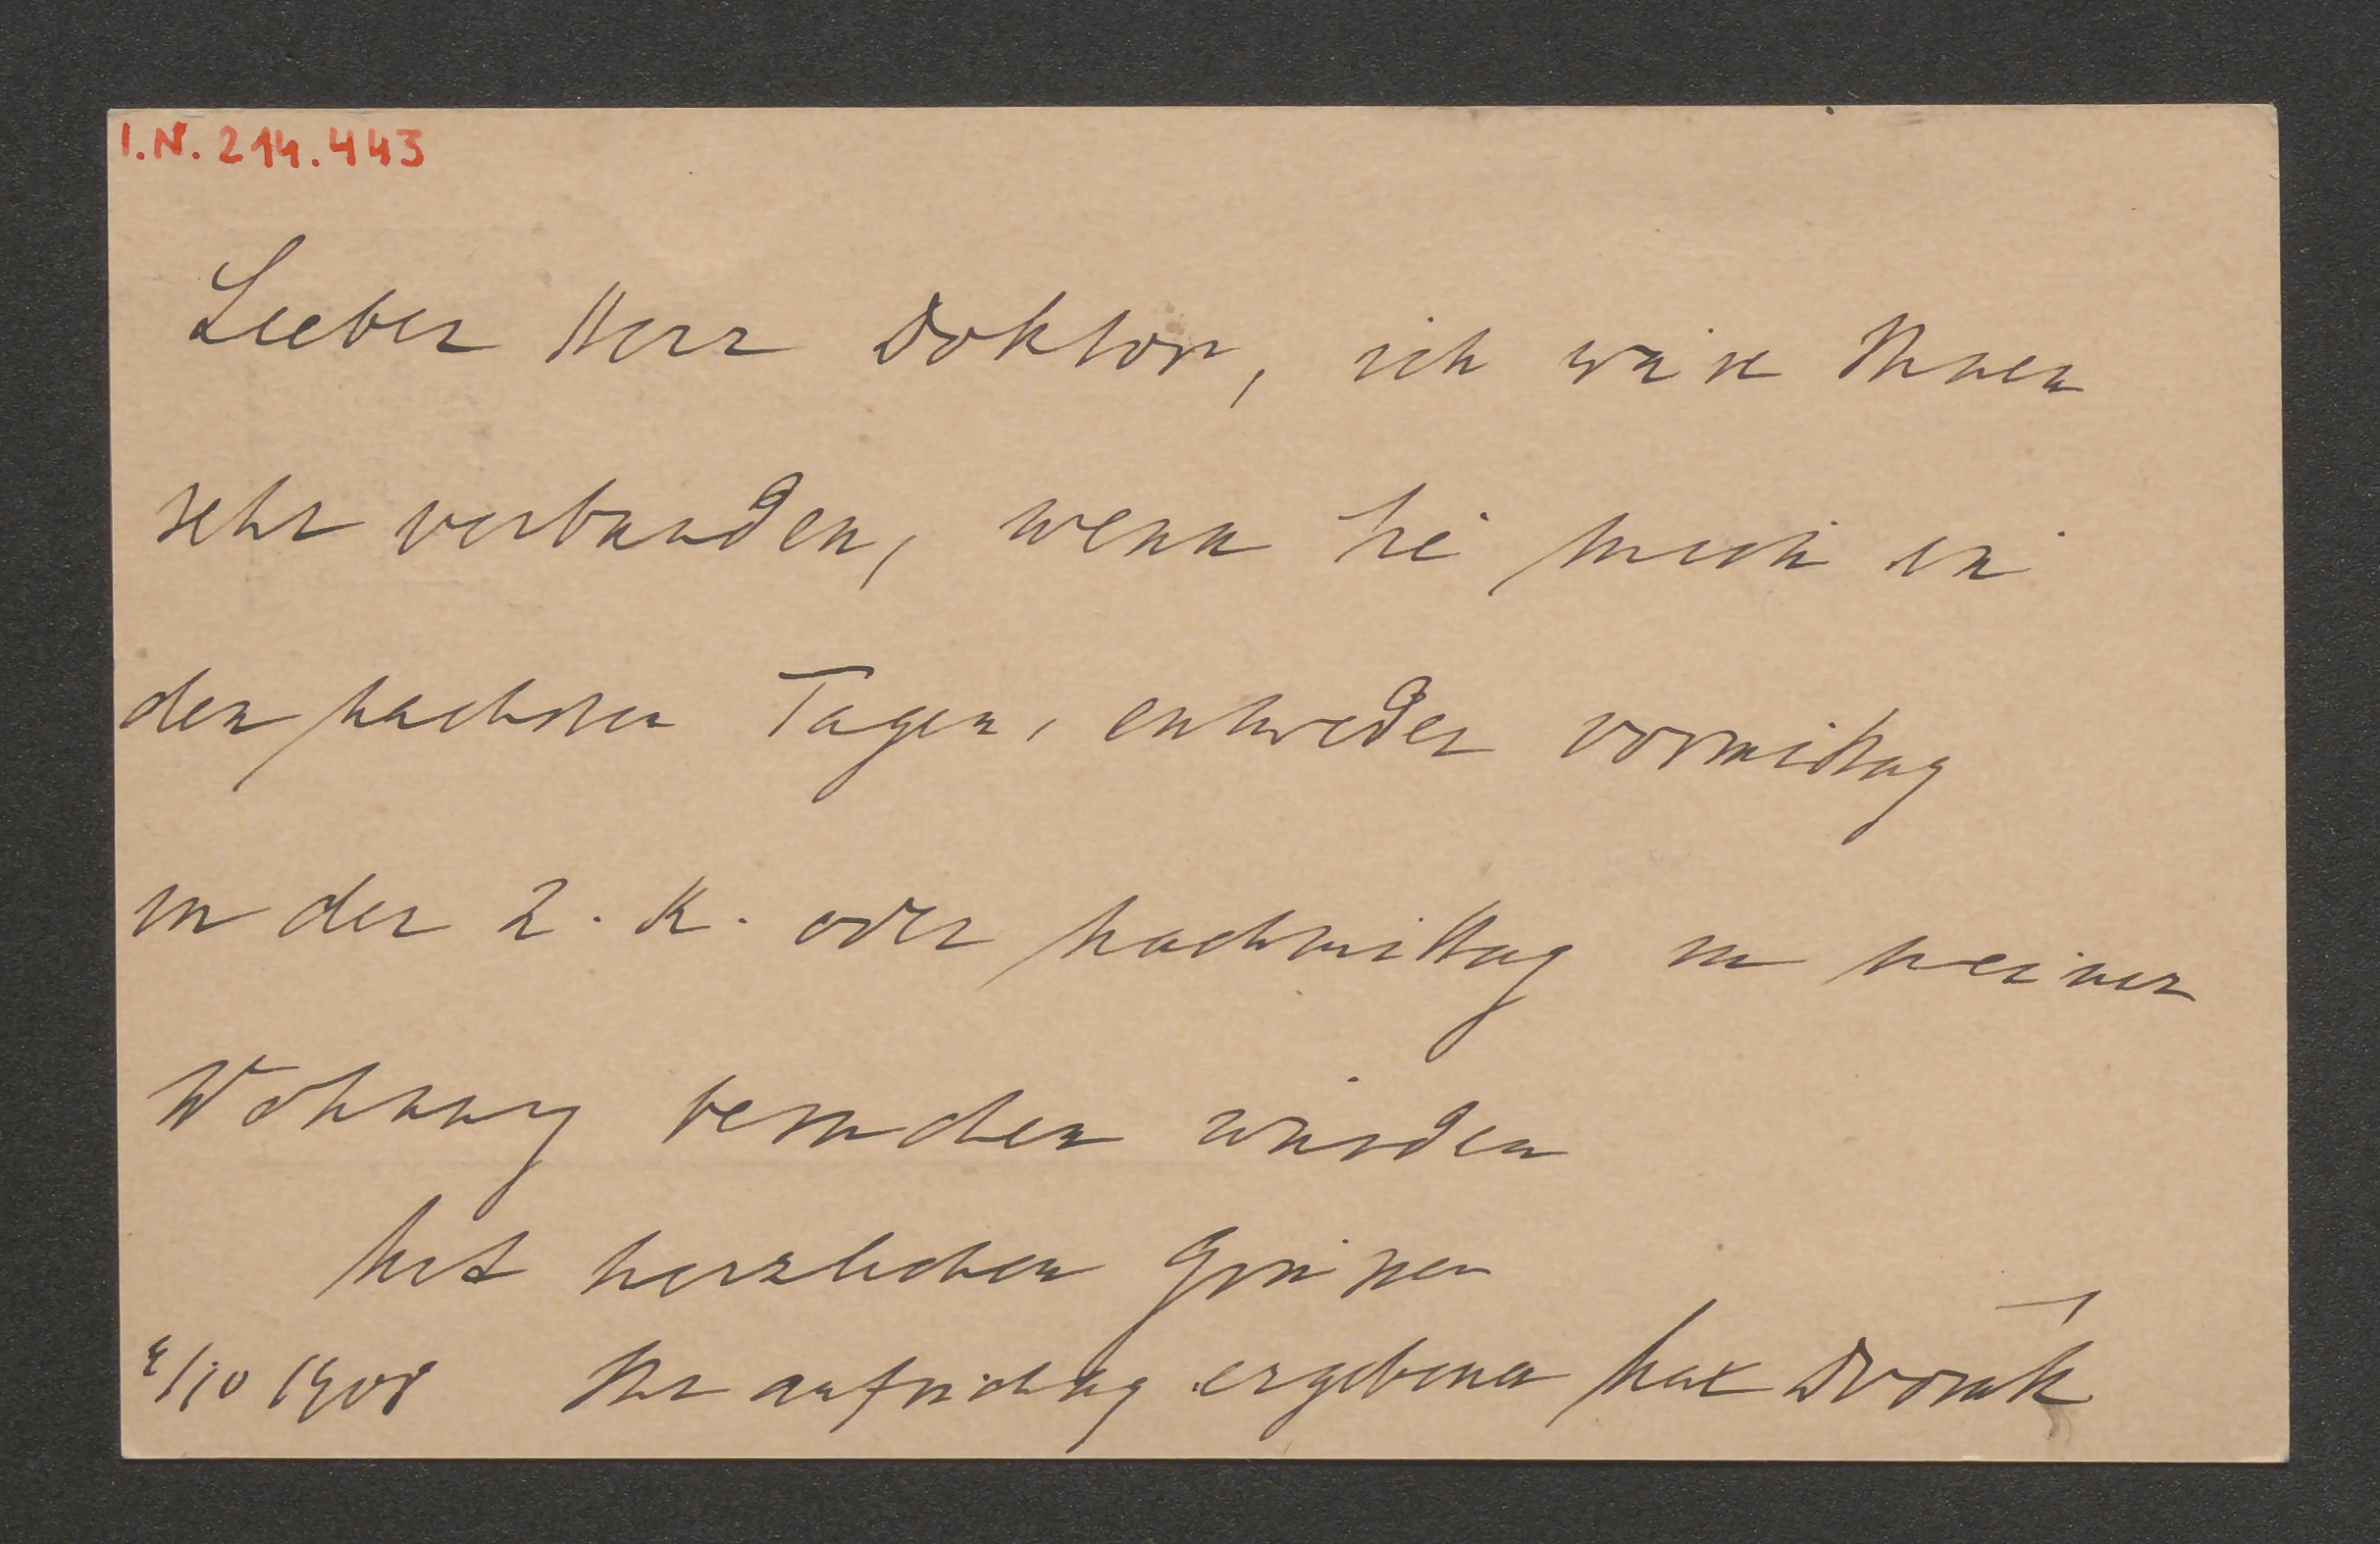 I.N. 214.443
Lieber Herr Doktor, ich wäre Ihnen
sehr verbunden, wenn Sie mich in
den nächsten Tagen, entweder vormittag
in der Z. K. oder nachmittag in meiner
Wohnung besuchen würden
Mit herzlichen Grüssen
4/10 1908 Ihr aufrichtig ergebener Max Dvořák